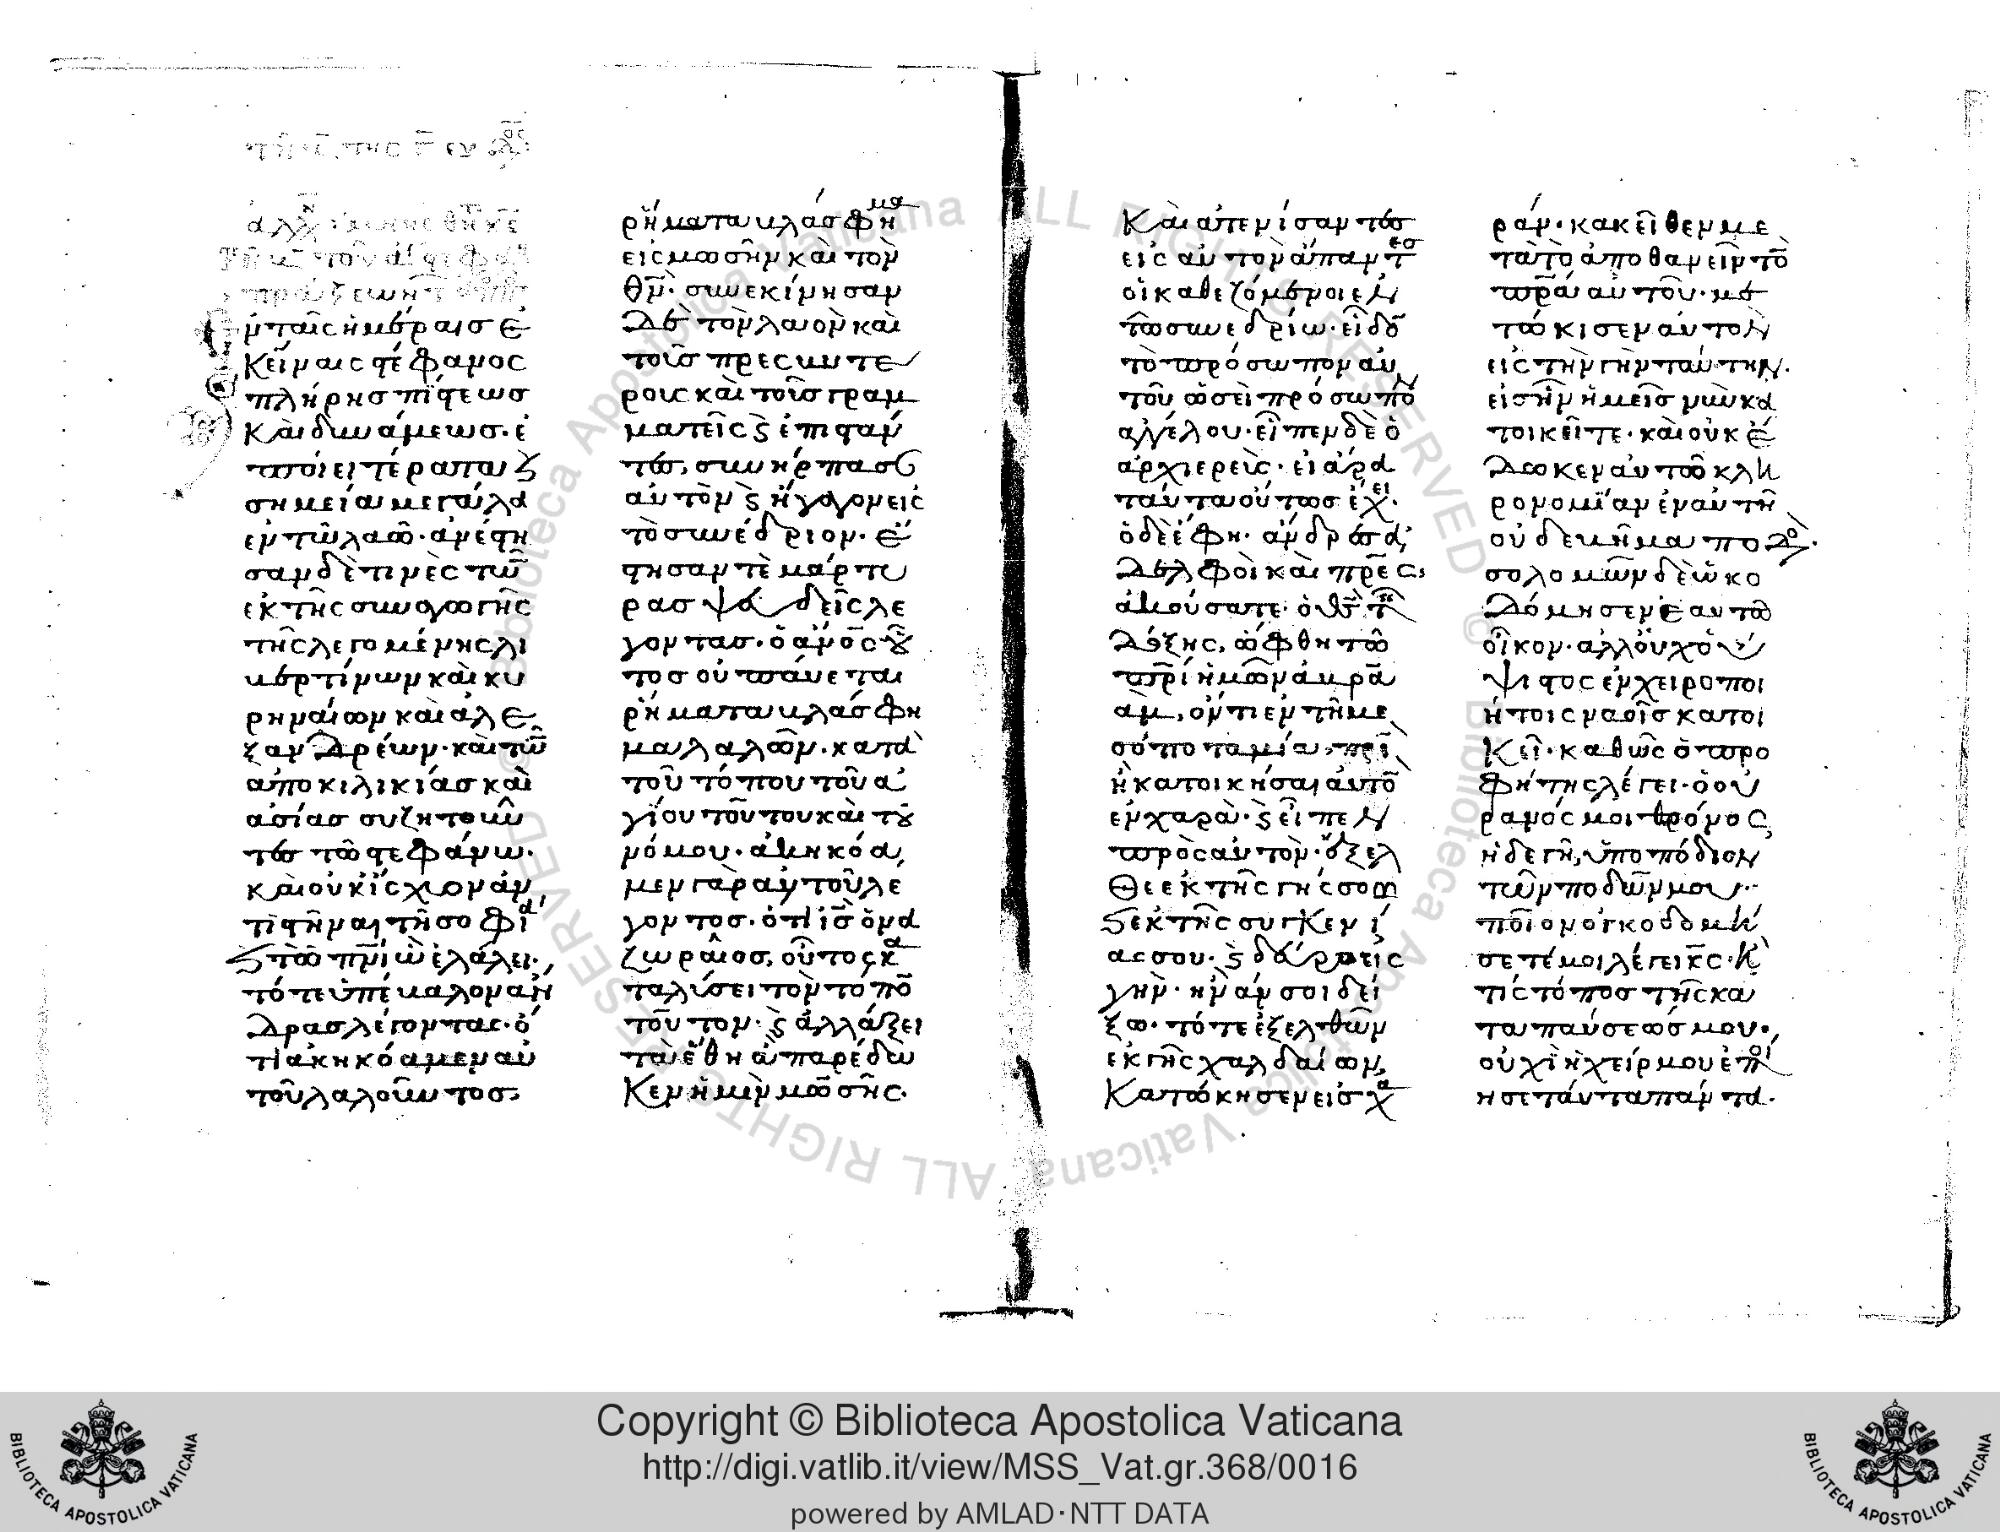 πράξεων τ
ἐν ταῖς ἡμέραις ἐ
κείναις στέφανος
πλήρης πίστεως
καὶ δυνάμεως· ἐ
ποίει τέρατα ϗ
σημεῖα μεγάλα
ἐν τῶ λαῶ· ἀνέστη
σαν δὲ τινὲς τῶν
ἐκ τῆς συναγωγῆς
τῆς λεγομένης λι
βερτίνων καὶ κυ
ρηναίων καὶ ἀλε
ξανδρέων· καὶ τῶν
ἀπο κιλικίας καὶ
ἀσίας συζητοῦν
τες τῶ στεφάνω·
καὶ οὐκ ἴσχυον ἀν
τιστῆναι τῆ σοφία
ϗ τῶ πνι ὧ ἐλάλει·
τότε ὑπέβαλον ἄν
δρας λέγοντας· ὅ
τι ἀκηκόαμεν αὐ
τοῦ λαλοῦντος
ρήματα βλάσφημα
εἰς μωσῆν καὶ τὸν
θν· συνεκίνησαν
δὲ τὸν λαὸν καὶ
τοὺς πρεσβυτέ
ρους καὶ τοὺς γραμ
ματεῖς ϗ ἐπιστάν
τες, συνήρπασαν
αὐτὸν ϗ ἤγαγον εἰς
τὸ συνέδριον· ἔ
στησαν τὲ μάρτυ
ρας ψευδεῖς λέ
γοντας· ὁ ἄνος οὗ
τος οὐ παύεται
ρήματα βλάσφη
μα λαλῶν· κατὰ
τοῦ τόπου τοῦ ἁ
γίου τούτου καὶ τοῦ
νόμου· ἀκηκόα
μεν γὰρ αὐτοῦ λέ
γοντος· ὅτι ις ὁ να
ζωραῖος, οὗτος κα
ταλύσει τὸν τόπον
τοῦτον· ϗ ἀλλάξει
τὰ ἔθη ἃ παρέδω
κεν ἡμῖν μωσῆς·
Καὶ ἀτενίσαντες
εἰς αὐτὸν ἅπαντες
οἱ καθεζόμενοι ἐν
τῶ συνεδρίω· εἶδον
τὸ πρόσωπον αὐ
τοῦ ὡσεὶ πρόσωπον
ἀγγέλου· εἶπεν δὲ ὁ
ἀρχιερεὺς· εἰ ἄρα
ταῦτα οὕτως ἔχει·
ὁ δὲ ἔφη· ἄνδρες ἀ
δελφοὶ καὶ πρες,
ἀκούσατε· ὁ θς τῆς
δόξης, ὤφθη τῶ
πρι ἡμῶν ἀβρα
ὰμ, ὄντι ἐν τῆ με
σοποταμία, πρὶν
ἢ κατοικῆσαι αὐτὸν
ἐν χαρὰν· ϗ εἶπεν
πρὸς αὐτὸν· ἔξελ
θε ἐκ τῆς γῆς σου
ϗ ἐκ τῆς συγκενεί
ας σου· ϗ δεῦρο εἰς
γῆν· ἣν ἄν σοι δεί
ξω· τότε ἐξελθὼν
ἐκ γῆς χαλδαίων,
Κατώκησεν εἰς χα
ράν· κακεῖθεν με
τὰ τὸ ἀποθανεῖν τὸν
πρα αὐτοῦ· με
τώκισεν αὐτὸν
εἰς τὴν γῆν ταύτην.
εἰς ἣν ἡμεῖς νῦν κα
τοικεῖτε· καὶ οὐκ ἔ
δωκεν αὐτῶ κλη
ρονομίαν ἐν αὐτῆ
οὐδὲ βῆμα ποδός·
σολομῶν δὲ ὠκο
δόμησεν ἑαυτῶ
οἶκον· ἀλλ οὐχ ὁ ὕ
ψιστος ἐν χειροποι
ήτοις ναοῖς κατοι
κεῖ· καθὼς ὁ προ
φήτης λέγει· ὁ οὐ
ρανός μοι θρόνος
ἡ δὲ γῆ, ὑποπόδιον
τῶν ποδῶν μου·
ποῖον οἶκον οἰκοδομή
σετέ μοι λέγει κς· ἢ
τίς τόπος τῆς κα
ταπαύσεώς μου·
οὐχὶ ἡ χείρ μου ἐποί
ησε ταῦτα πάντα.
Copyright © Biblioteca Apostolica Vaticana
http://digi.vatlib.it/view/MSS_Vat.gr.368/0016
powered by AMLAD·NTT DATA
BIBLIOTECA APOSTOLICA VATICANA
BIBLIOTECA APOSTOLICA VATICANA